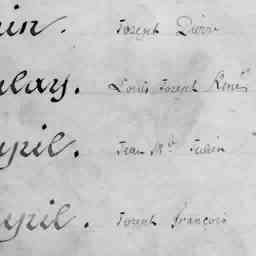 in. Joseph Pierre
lay. Louis Joseph René
yril. Jean M.ie Julien
yril. Joseph françois